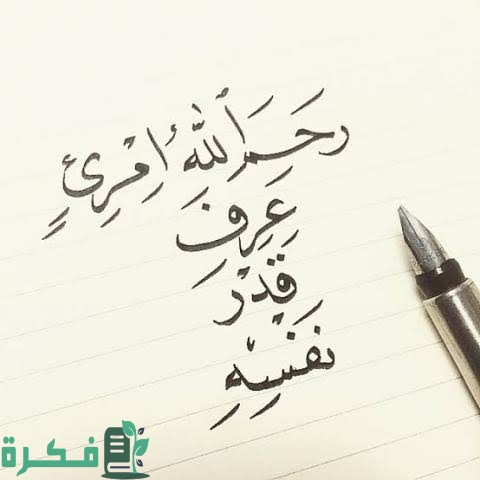 رَحِمَ ٱللهُ اِمْرِئٍ
عَرِفَ
قِدْرَ
نَفْسِهِ
فكرة